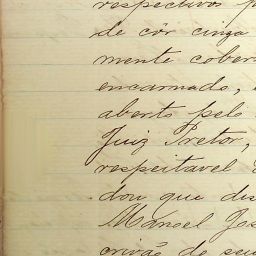 respectivos p
de côr cinza
mente cober
encarnado,
aberto pelo
Juiz Pretor,
respeitavel
dou que dis
Manoel Jos
crivão de seu